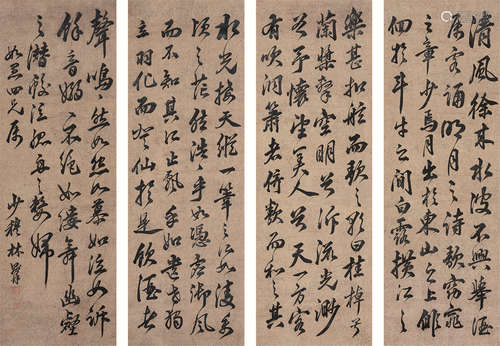 清風徐來水波不興舉酒
屬客誦明月之詩歌窈窕
之章少焉月出於東山之上徘
徊於斗牛之間白露橫江
樂甚扣舷而歌之歌曰桂棹兮
蘭槳擊空明兮泝流光渺
兮予懷望美人兮天一方客
有吹洞簫者倚歌而和之其
水光接天縱一葦之所如凌萬
頃之茫然浩浩乎如憑虛御風
而不知其所止飄乎如遺世獨
立羽化而登仙於是飲酒
聲嗚嗚然如怨如慕如泣如訴
餘音嫋嫋不絕如縷舞幽壑
之潛蛟泣孤舟之嫠婦
四兄屬
少穆林